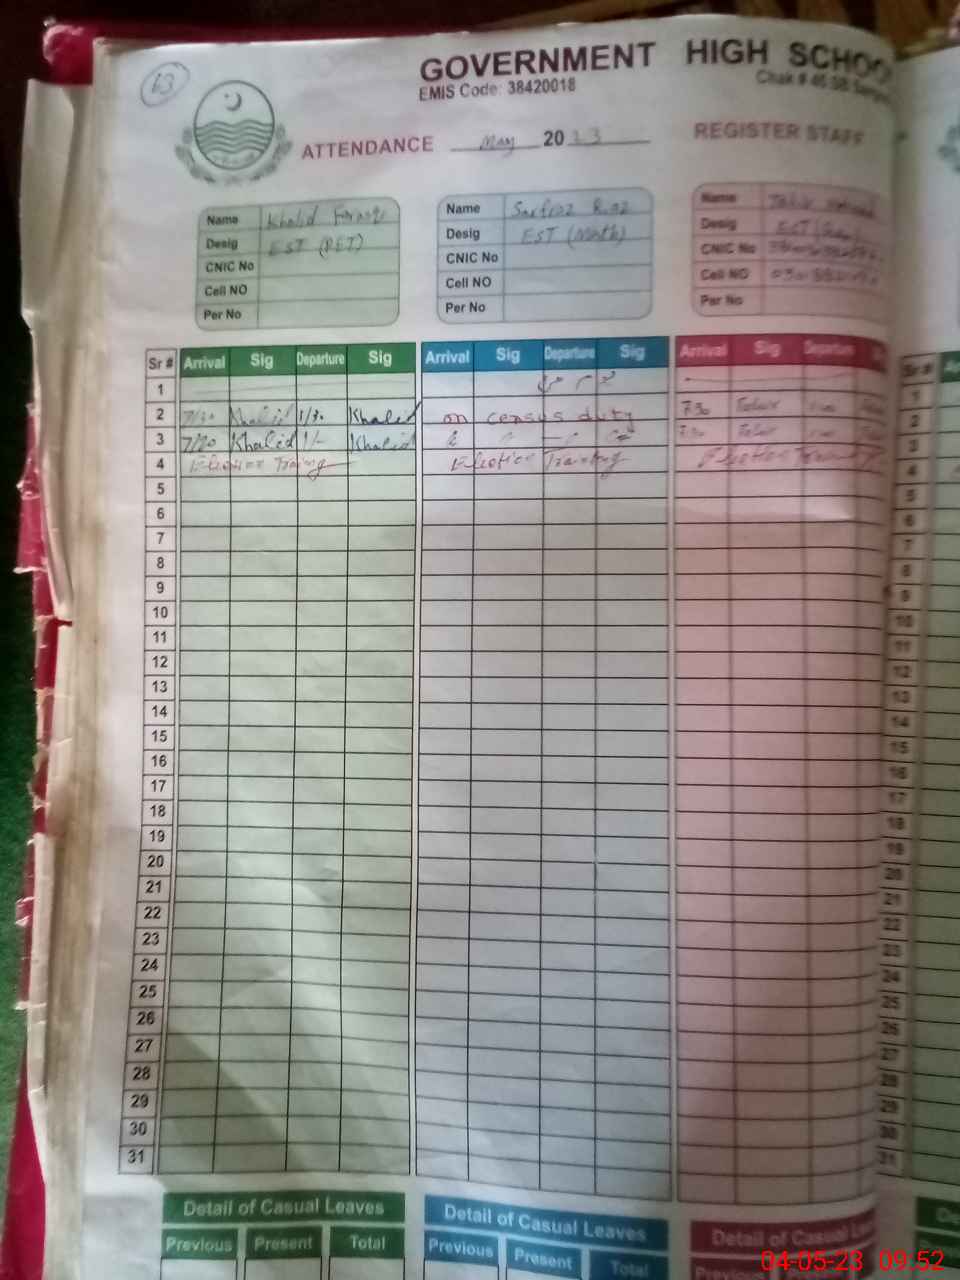 13
GOVERNMENT HIGH SCHOO
EMIS Code: 38420018
Chak # 46 SB
ATTENDANCE May 2023 REGISTER STAFF
Name Khalid
Desig EST (PET)
CNIC No
Cell NO
Per No
Name Sarfraz
Desig EST (Math)
CNIC No
Cell NO
Per No
Name
Desig EST
CNIC No
Cell NO
Per No
Sr # Arrival Sig Departure Sig Arrival Sig Departure Sig Arrival Sig Departure
1
2 7/30 Khalid 1/30 Khalid on census duty 7 30
3 Khalid 1/- Khalid
4 Election Training Election Training Election
5
6
7
8
9
10
11
12
13
14
15
16
17
18
19
20
21
22
23
24
25
26
27
28
29
30
31
Detail of Casual Leaves Detail of Casual Leaves Detail of Casual
Previous Present Total Previous Present Total Previous
Sr #
1
2
3
4
5
6
7
8
9
10
11
12
13
14
15
16
17
18
19
20
21
22
23
24
25
26
27
28
29
30
31
04-05-23 09.52